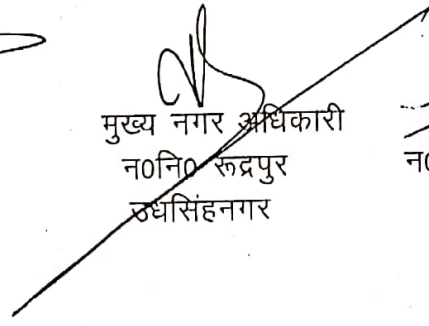 मुख्य नगर अधिकारी
न0नि0 रूद्रपुर
उधसिंहनगर
न0